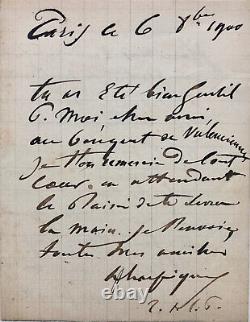 Paris le 6 8bre 1900
tu as été bien gentil
P. Moi cher ami,
au banquet de Valenciennes
je t'en remercie de tout
cœur en attendant
le plaisir de te serrer
la main. je t'envoie
toutes mes amitiés